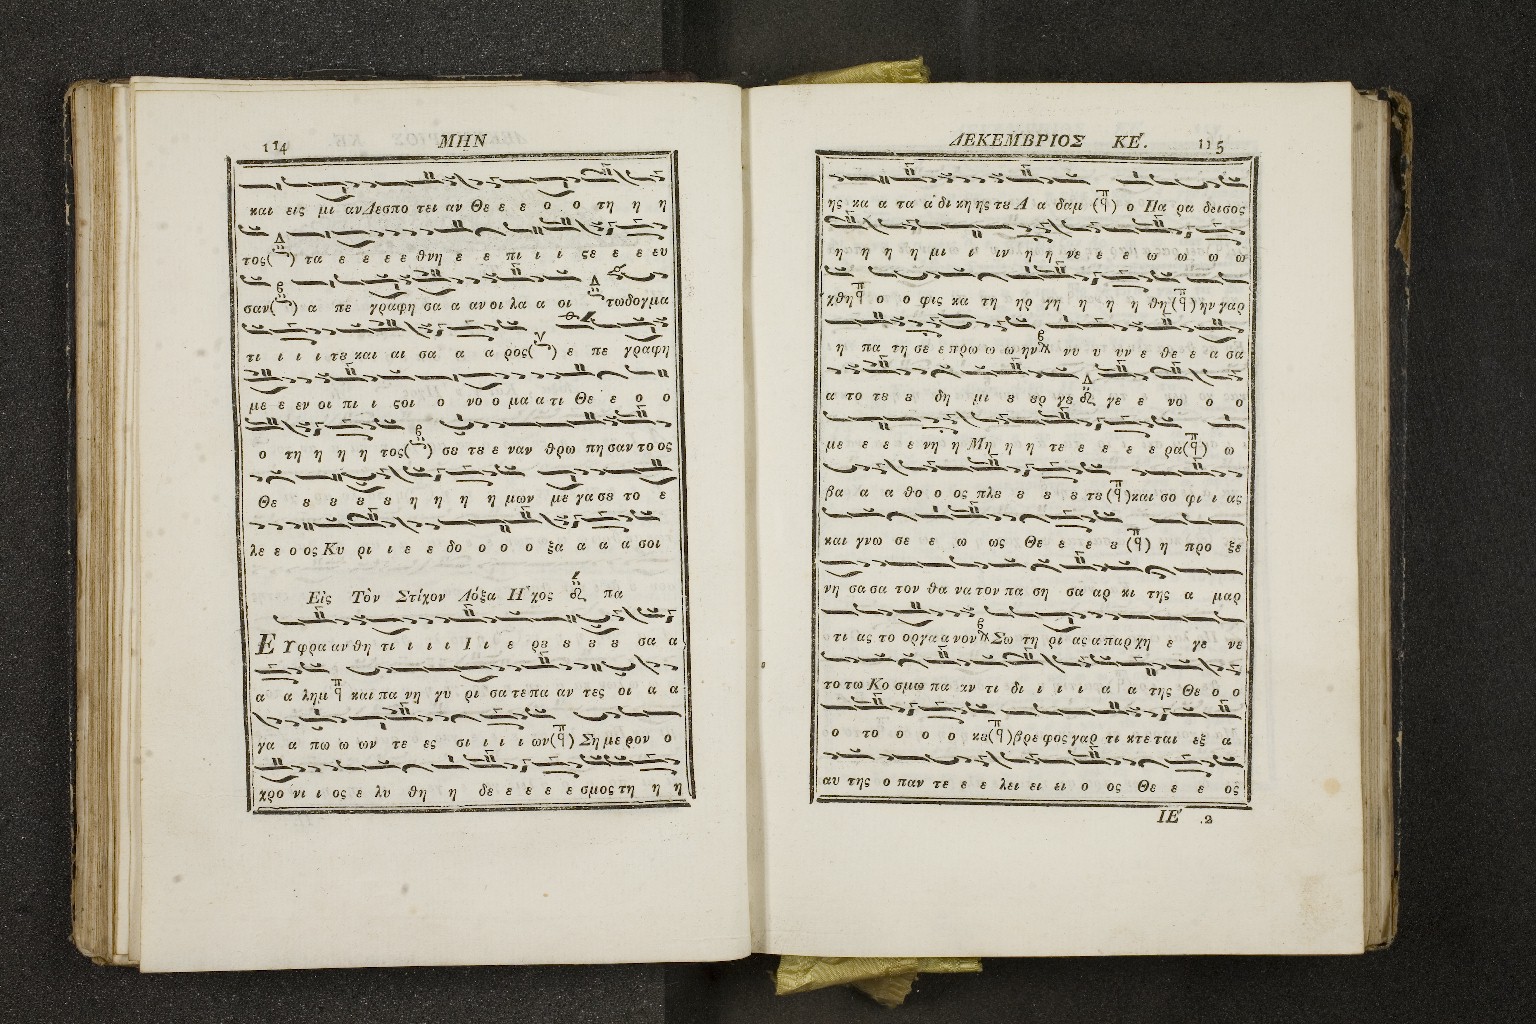 114 ΜΗΝ
και εις μι αν Δεσπο τει αν Θε ε ε ο ο τη η η
τος( ) τα ε ε ε ε θνη ε ε πι ι ι ςε ε ε ευ
σαν( ) α πε γραφη σα α αν οι λα α οι τωδογμα
τι ι ι ι τȣ και αι σα α α ρος( ) ε πε γραφη
με ε εν οι πι ι ςοι ο νο ο μα α τι Θε ε ο ο
ο τη η η η τος( ) σȣ τȣ ε ναν θρω πη σαν το ος
Θε ȣ ȣ ȣ ȣ η η η η μων με γα σȣ το ε
λε ε ο ος Κυ ρι ι ε ε δο ο ο ο ξα α α α σοι
Εἰς Τὸν Στίχον Δόξα Ἦχος πα
Ε Υφρα αν θη τι ι ι ι Ι ι ε ρȣ ȣ ȣ ȣ σα α
α α λημ και πα νη γυ ρι σα τε πα αν τες οι α α
γα α πω ω ων τε ες σι ι ι ι ων( ) Σημερον ο
χρο νι ι ος ε λυ θη η δε ε ε ε ε σμος τη η η
ΔΕΚΕΜΒΡΙΟΣ ΚΕ΄. 115
ης κα α τα α δι κη ης τȣ Α α δαμ ( ) ο Πα ρα δεισος
η η η η μι ι ιν η η νε ε ε ω ω ω ω
χθη ο ο φις κα τη ηρ γη η η η θη( ) ην γαρ
η πα τη σε ε πρω ω ω ην νυ υ υν ε θε ε α σα
α το τȣ ȣ δη μι ȣ ȣρ γȣ γε ε νο ο ο
με ε ε ε νη η Μη η η τε ε ε ε ε ρα( ) ω
βα α α θο ο ος πλȣ ȣ ȣ ȣ τȣ( )και σο φι ι ας
και γνω σε ε ω ως Θε ε ε ȣ ( ) η προ ξε
νη σα σα τον θα να τον πα ση σα αρ κι της α μαρ
τι ας το οργα α νον Σω τη ρι ας α παρ χη ε γε νε
το τω Κο σμω πα αν τι δι ι ι ι α α της Θε ο ο
ο το ο ο ο κȣ( )βρε φος γαρ τι κτε ται εξ α
αυ της ο παν τε ε ε λει ει ει ο ος Θε ε ε ος
ΙΕ΄ .2